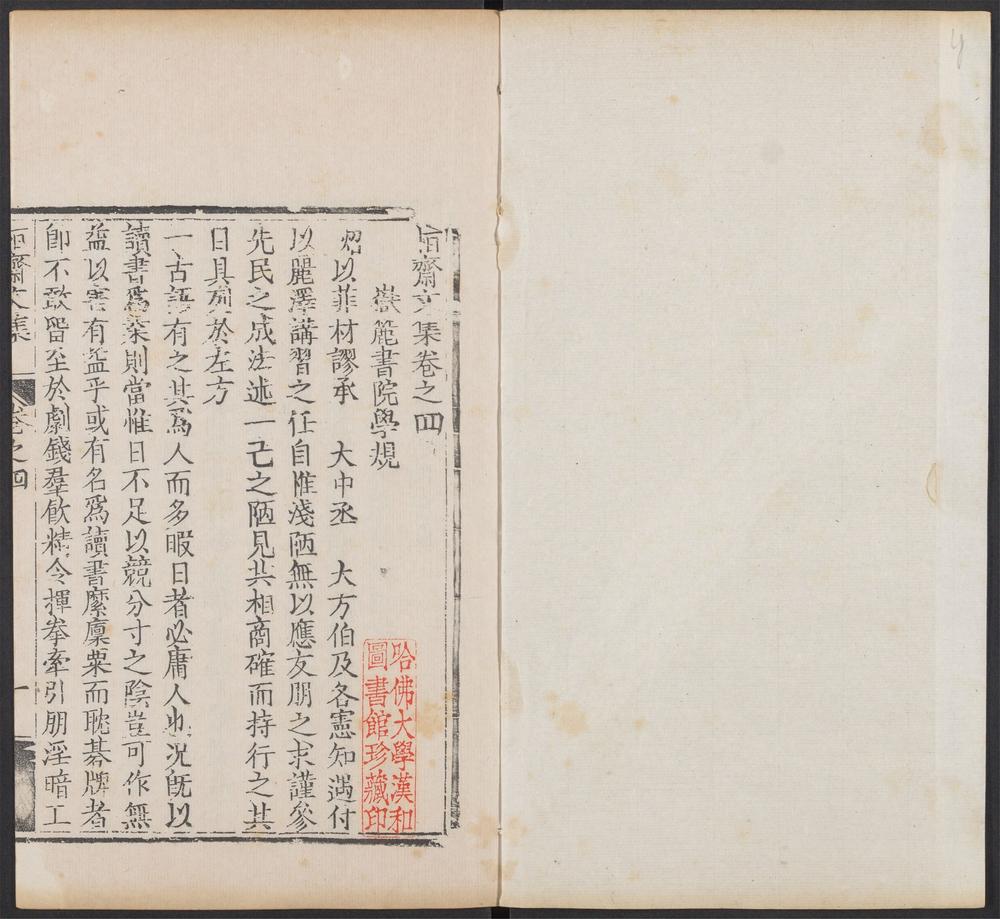 恒齋文集卷之四
嶽簏書院學規
炤以菲材謬承　大中丞　大方伯及各憲知遇付
以麗澤講習之任自惟淺陋無以應友朋之求謹參
先民之成法述一己之陋見共相商確而持行之其
目具列於左方
一古語有之其爲人而多暇日者必庸人也況旣以
讀書爲業則當惟日不足以競分寸之陰豈可作無
益以害有益乎或有名爲讀書縻廩粟而耽碁牌者
卽不敢留至於劇錢羣飮精令揮拳牽引朋淫暗工
恒齋文集
卷之四
一
哈佛大學漢和
圖書館珍藏印